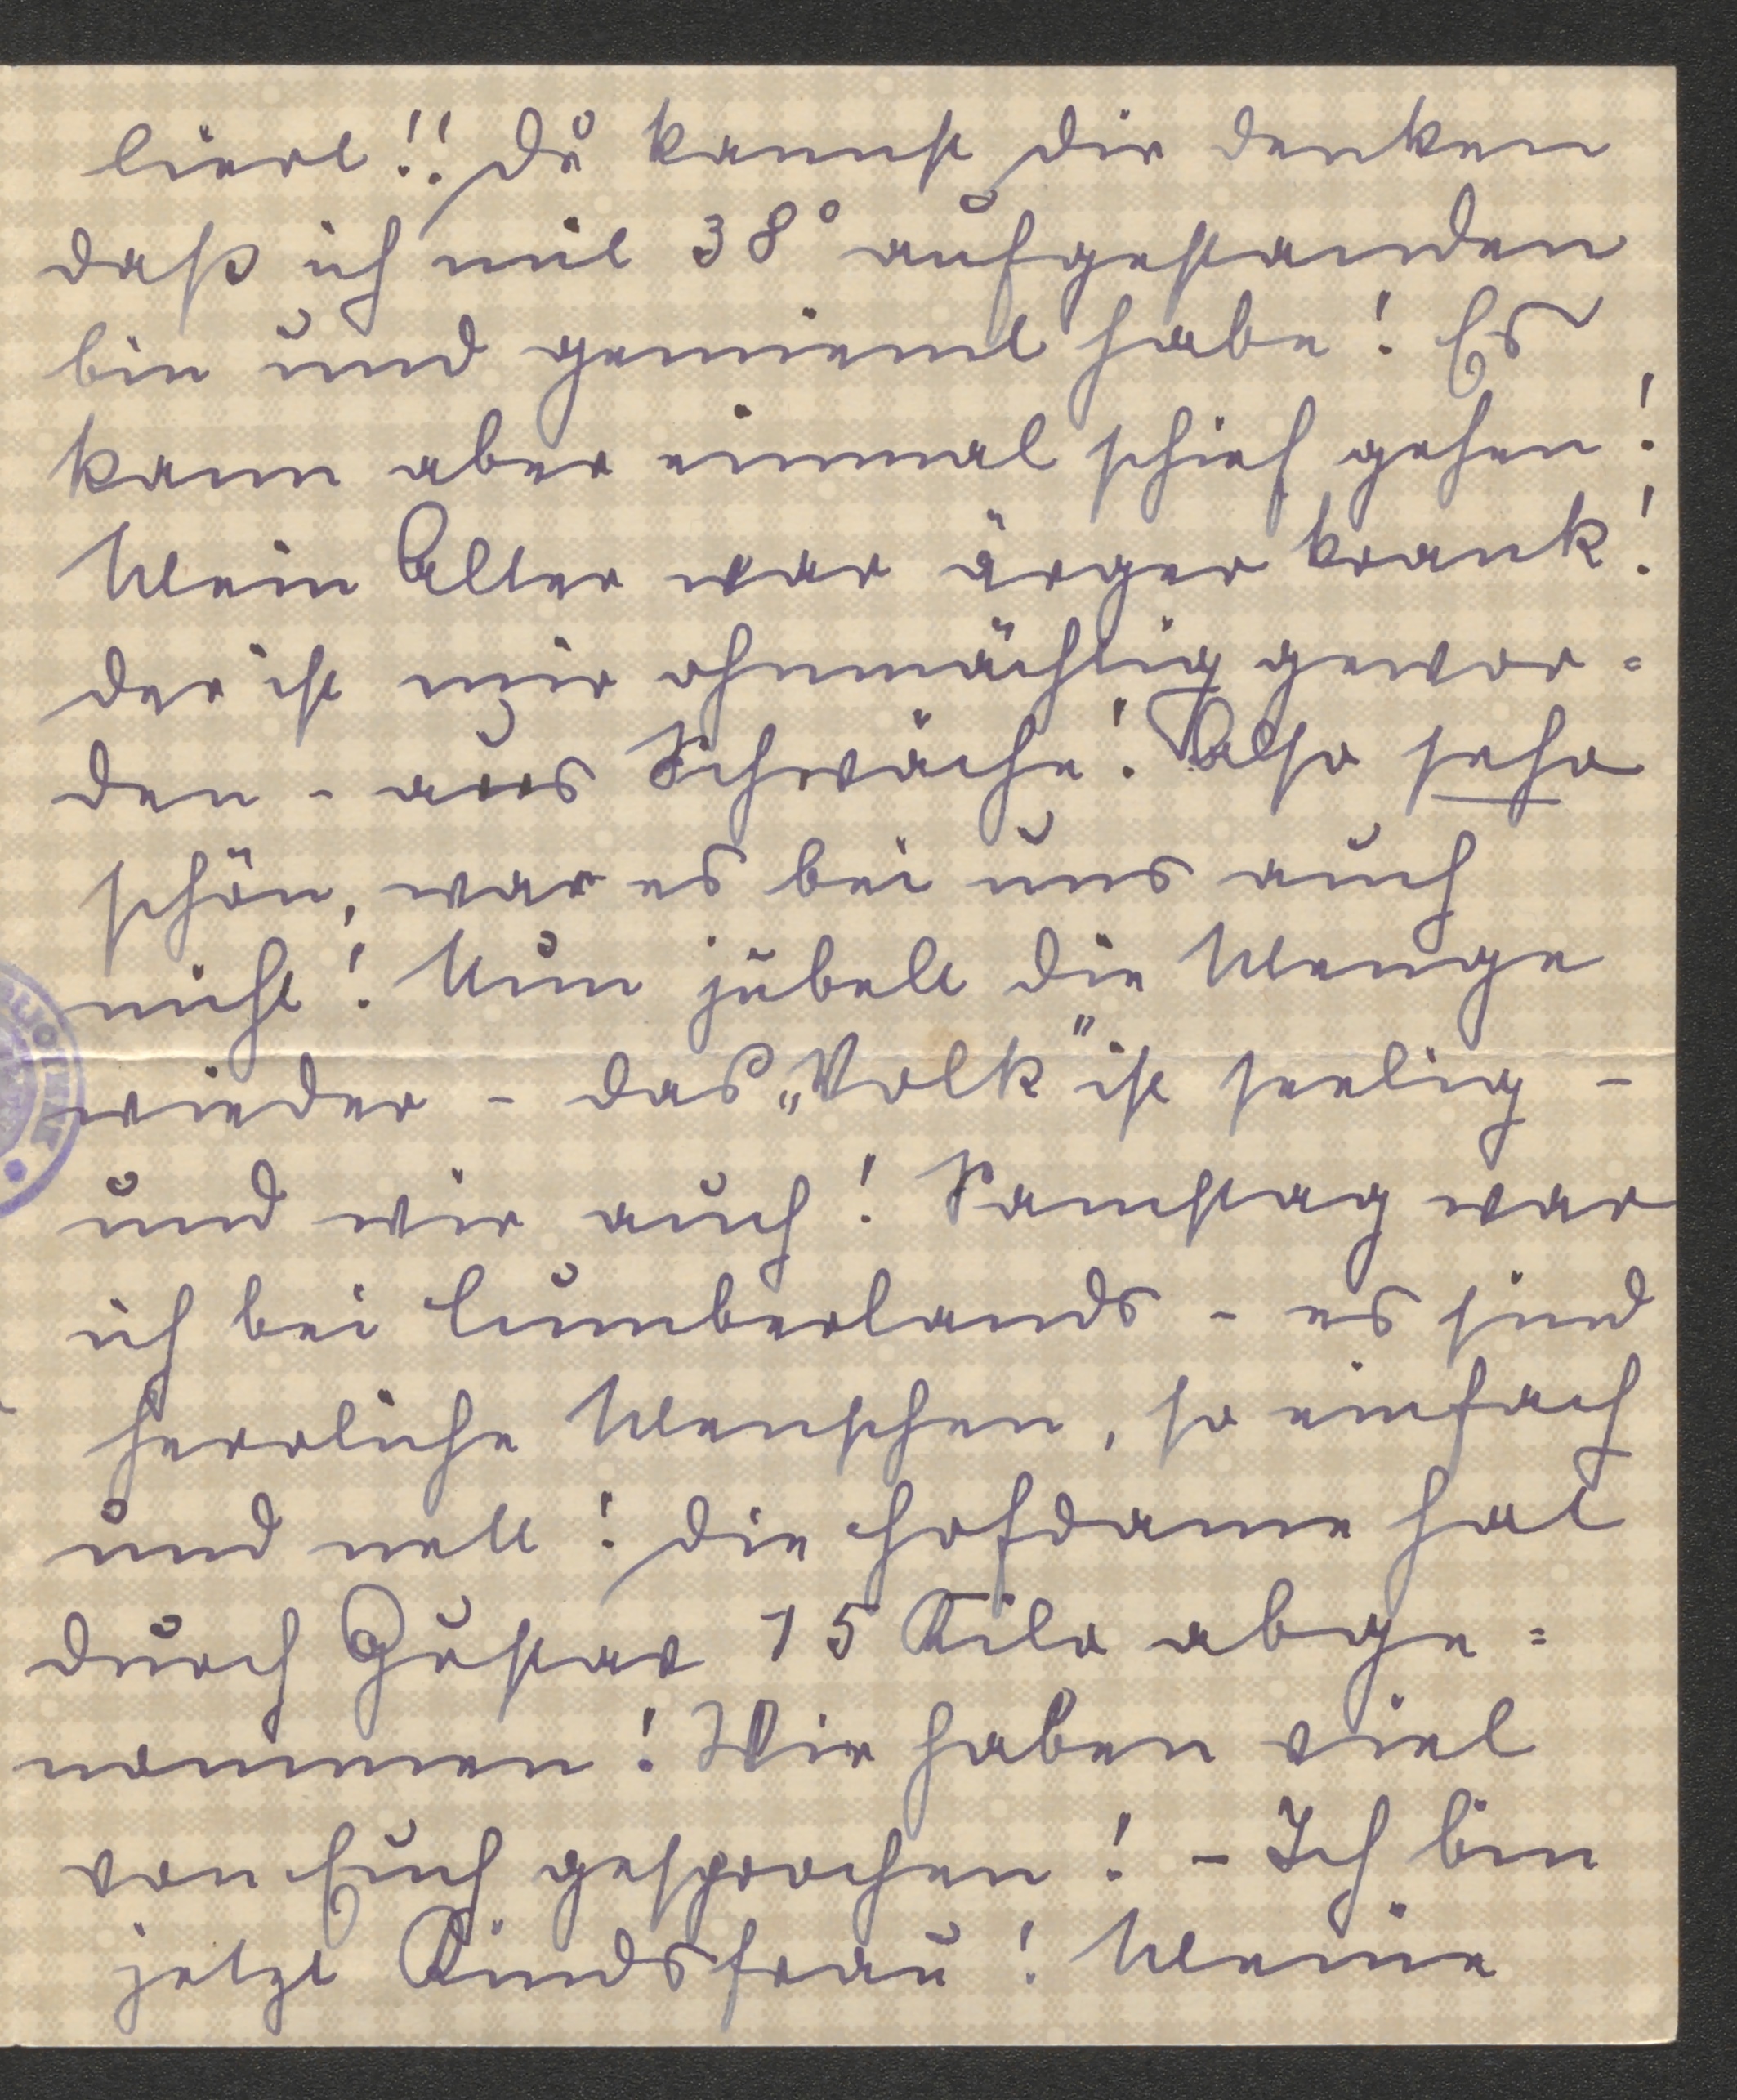 liert!! Du kannst Dir denken
daß ich mit 38° aufgestanden
bin und gemient habe! Es
kann aber einmal schief gehen!
Mein Alter war ärger krank!
der ist mir ohnmächtig gewor=
den - aus Schwäche! Also sehr
schön, war es bei uns auch
nicht! Nun jubelt die Menge
wieder - das „Volk" ist seelig -
und wir auch! Samstag war
ich bei Cumberlands - es sind
herrliche Menschen, so einfach
und nett! Die Hofdame hat
durch Gustav 15 Kilo abge=
nommen! Wir haben viel
von Euch gesprochen! - Ich bin
jetzt Kindsfrau! Meine